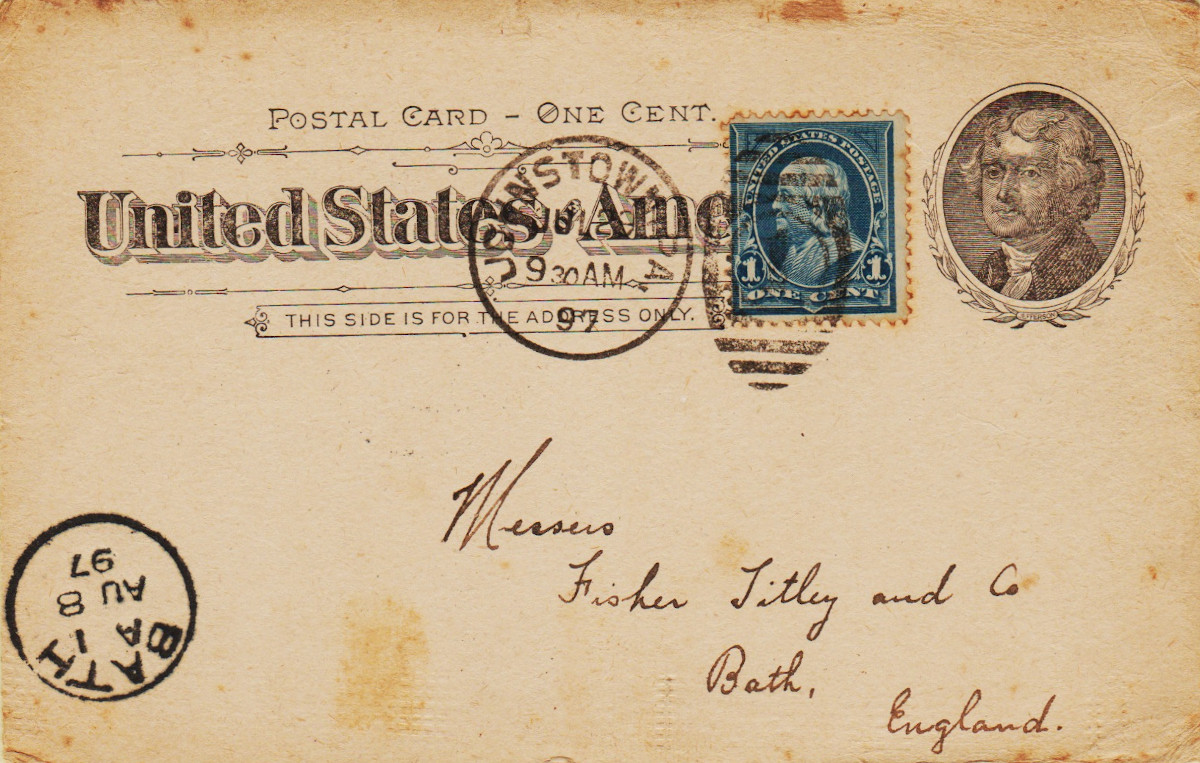 POSTAL CARD - ONE CENT.
United States Ame
THIS SIDE IS FOR THE ADDRESS ONLY.
JOHNSTOWN, PA.
9 30 AM
97
UNITED STATES POSTAGE
1 1
ONE CENT
JEFFERSON
Messers
Fisher Titley and Co
Bath,
England.
BATH
1 A
AU 8
97